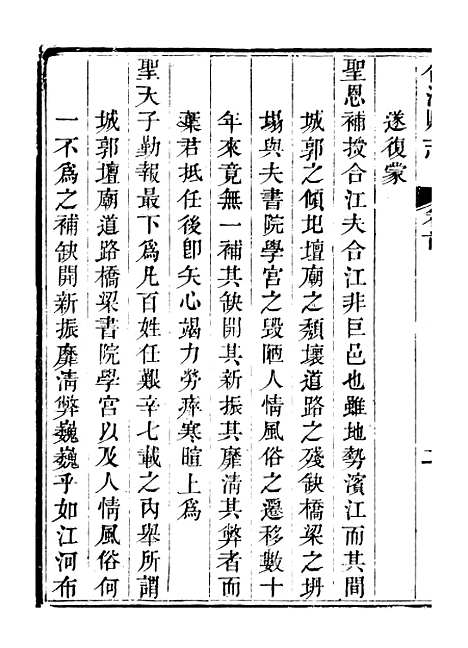 遂復蒙
聖恩補授合江夫合江非巨邑也雖地勢濱江而其間
城郭之傾圮壇廟之頽壞道路之殘缺橋梁之坍
塌與夫書院學宮之毀陋人情風俗之遷移數十
年來竟無一補其缺開其新振其靡清其弊者而
葉君抵任後卽矢心竭力勞瘁寒暄上爲
聖天子勤報最下爲凡百姓任艱辛七載之內舉所謂
城郭壇廟道路橋梁書院學宮以及人情風俗何
一不爲之補缺開新振靡清弊巍巍乎如江河布